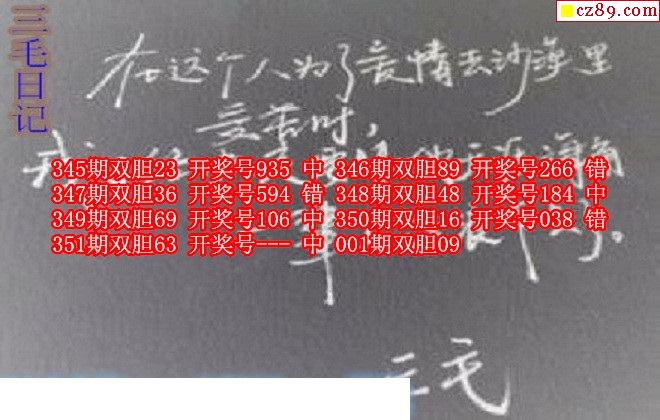 三毛日记
cz89.com
在这个人为了爱情去沙漠里
受苦时,
345期双胆23 开奖号935 中 346期双胆89 开奖号266 错
347期双胆36 开奖号594 错 348期双胆48 开奖号184 中
349期双胆69 开奖号106 中 350期双胆16 开奖号038 错
351期双胆63 开奖号--- 中 001期双胆09
三毛